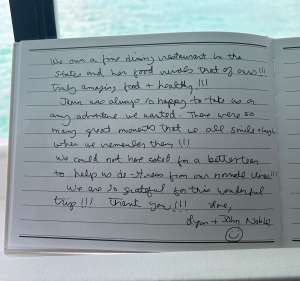 We own a fine dining restaurant in the
States and her food rivals that of ours!!!
Truly amazing food + healthy!!!
Jenn was always so happy to take us on
any adventure we wanted. There were so
many great moments that we all smile + laugh
when we remember them!!!
We could not have asked for a better team
to help us de-stress from our normal lives!!!
We are so grateful for this wonderful
trip!!! Thank you!!! Love,
Lynn + John